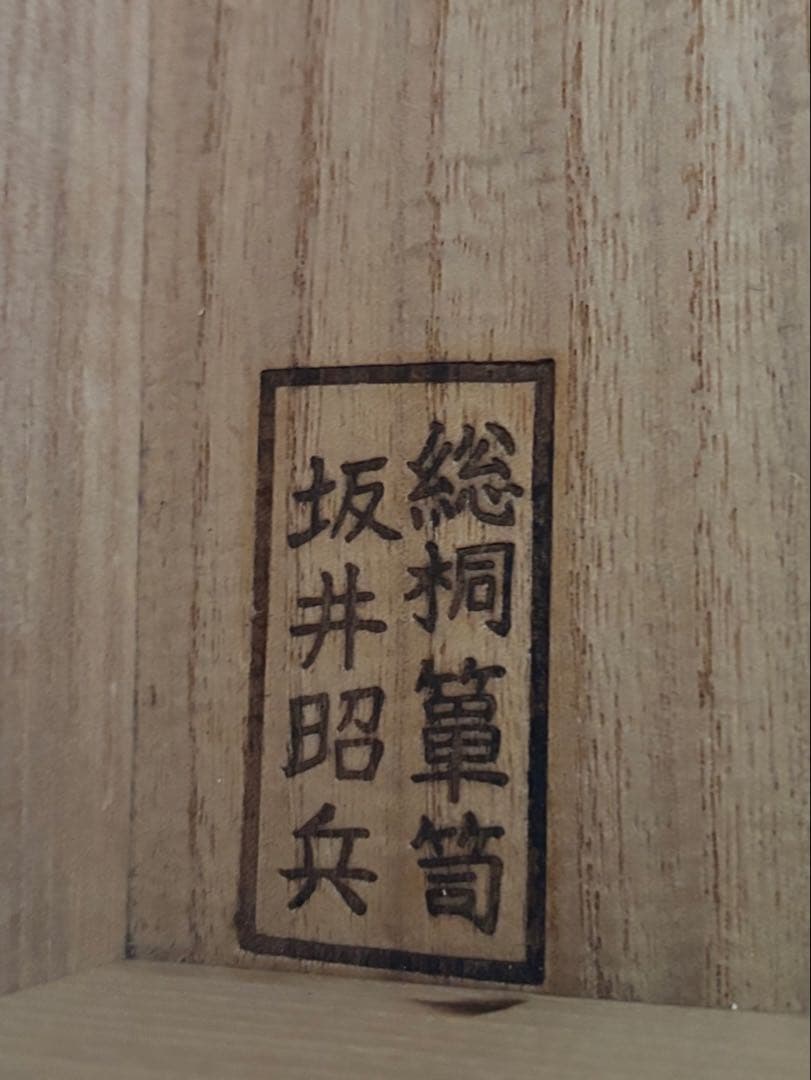 総桐簞笥
坂井昭兵